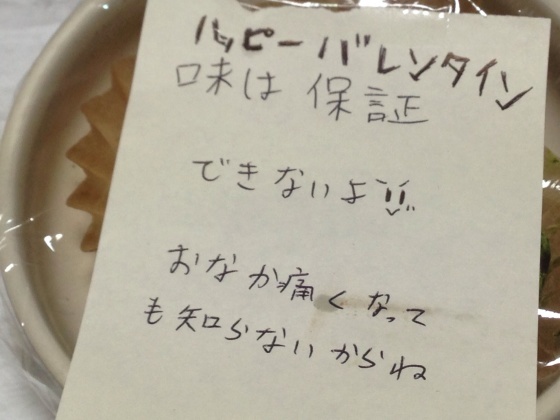 ハッピーバレンタイン
味は保証
できないよ
おなか痛くなって
も知らないからね